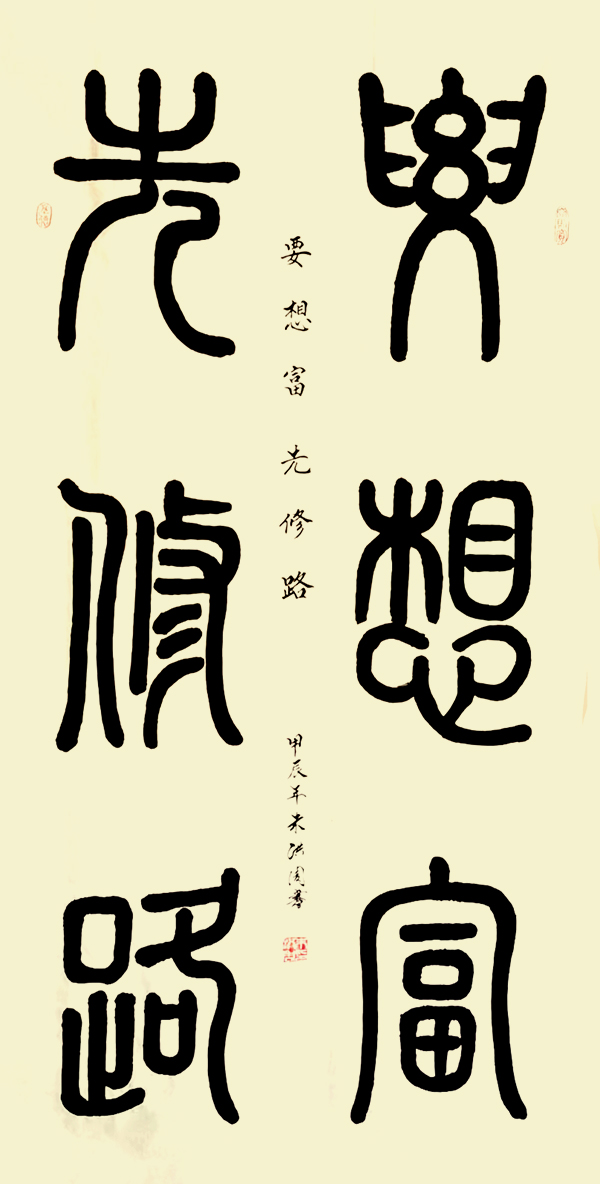 要想富
先修路
要想富先修路
甲辰年朱洪園書